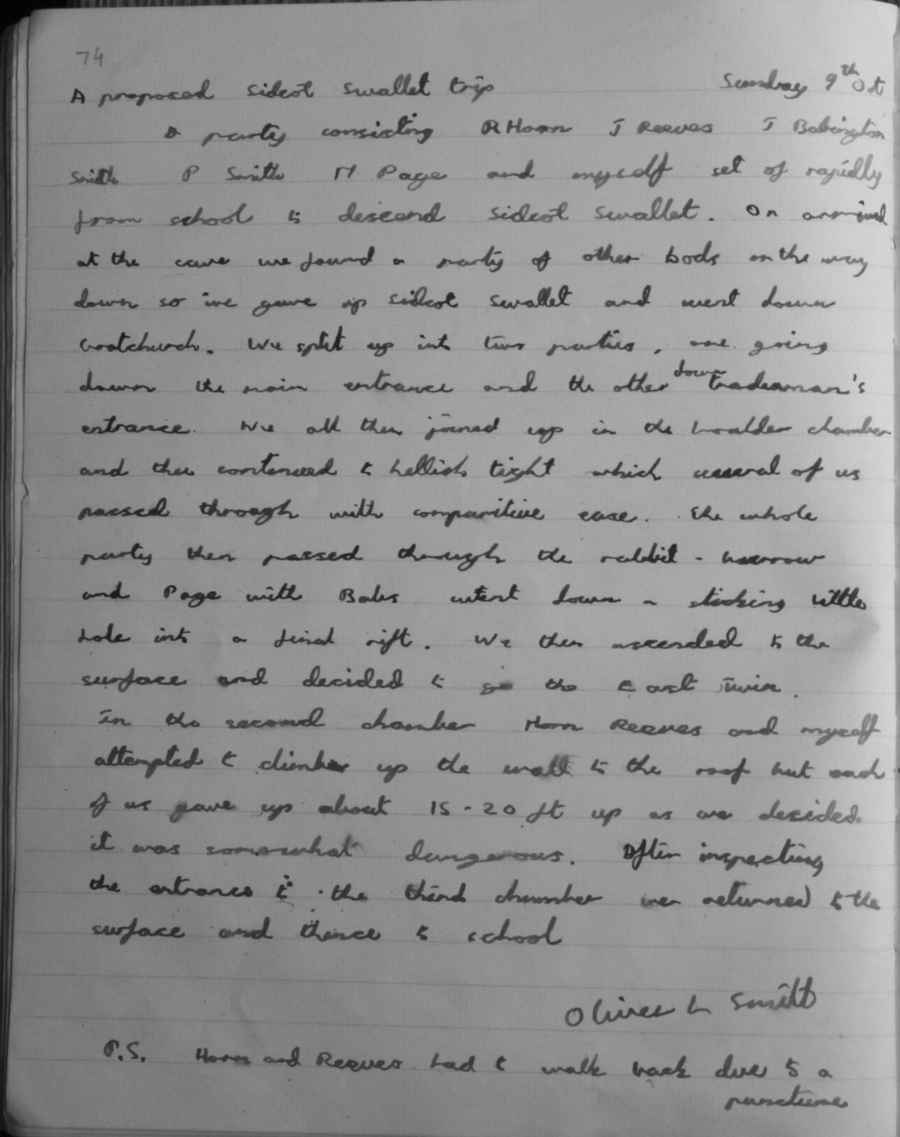 74
A proposed sidcot swallet trip Sunday 9th Oct
A party consisting R Horn J Reeves J Babington
Smith P Smith M Page and myself set of rapidly
from school to descend sidcot swallet. On arrival
at the cave we found a party of other bods on the way
down so we gave up sidcot swallet and went down
Goatchurch. We split up into two parties, one going
down the main entrance and the other down tradesman's
entrance. We all then joined up in the boulder chamber
and then continued to hellish tight which several of us
passed through with comparitive ease. The whole
party then passed through the rabbit - burrow
and Page with Babs went down a stinking little
hole into a final rift. We then ascended to the
surface and decided to go the East Twin.
In the second chamber Horn Reeves and myself
attempted to climber up the wall to the roof but each
of us gave up about 15-20 ft up as we decided
it was somewhat dangerous. After inspecting
the entrance to the third chamber we returned to the
surface and thence to school
Oliver L Smith
P.S. Horn and Reeves had to walk back due to a
puncture